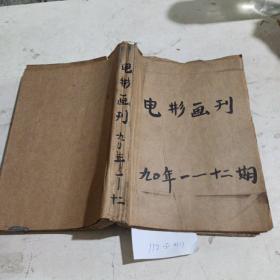 电影画刊
九〇年一一十二期
电影画刊九〇年一一十二